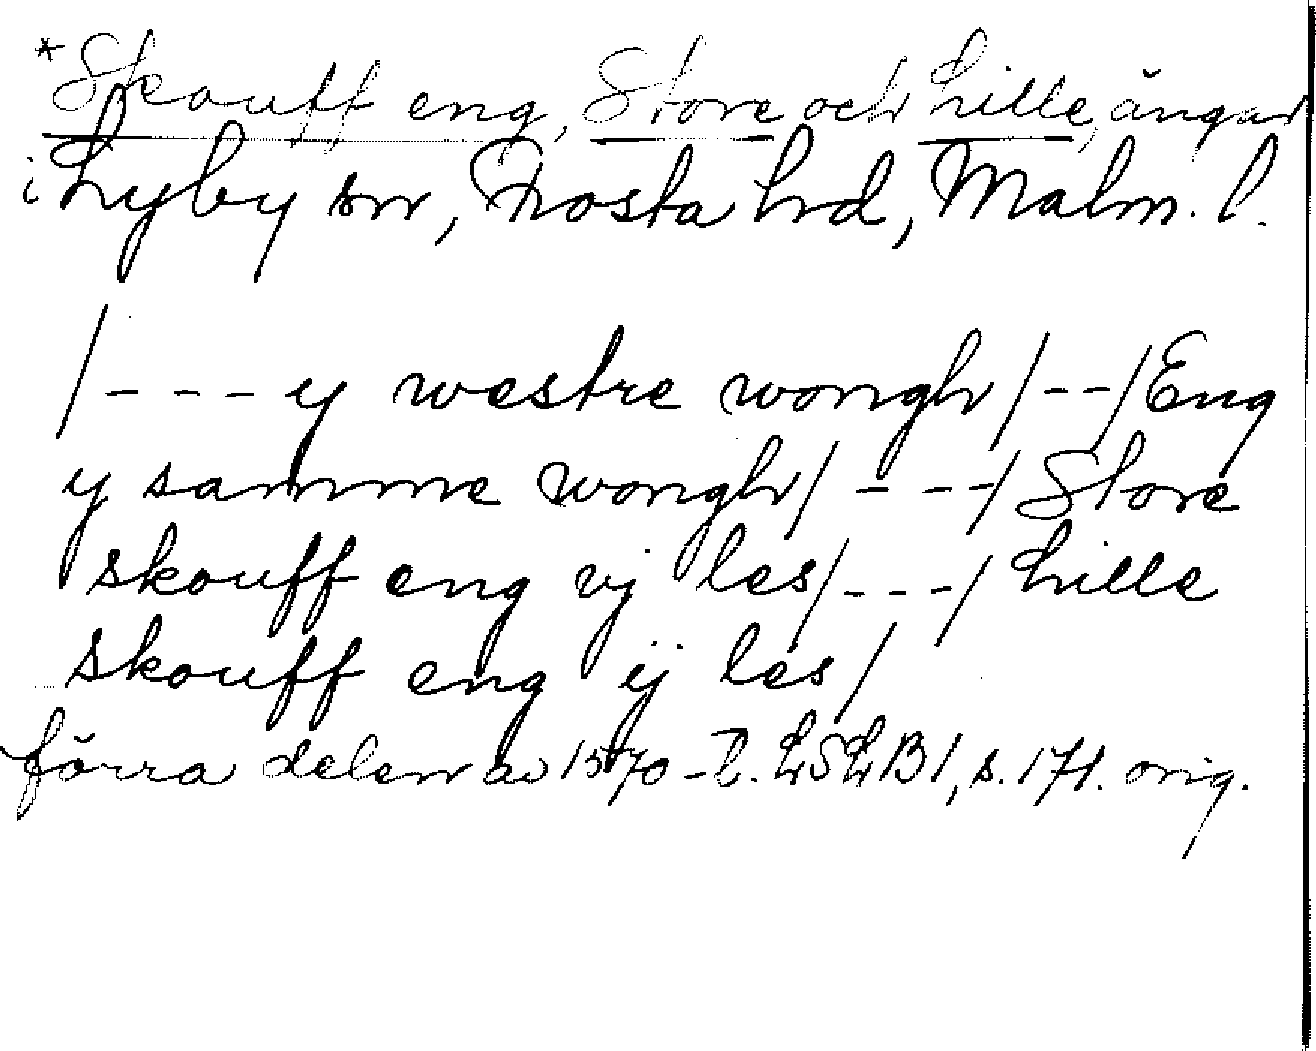 *Skouff eng, Store och Lille, ängar
i Lyby sn, Frosta hrd, Malm. l.
/---y westre wongh/--/Eng
y samme wongh/---/Store
skouff eng vj les/---/Lille
skouff eng ij les/
förra delen av 1570-t. LSLB1, s. 171. orig.